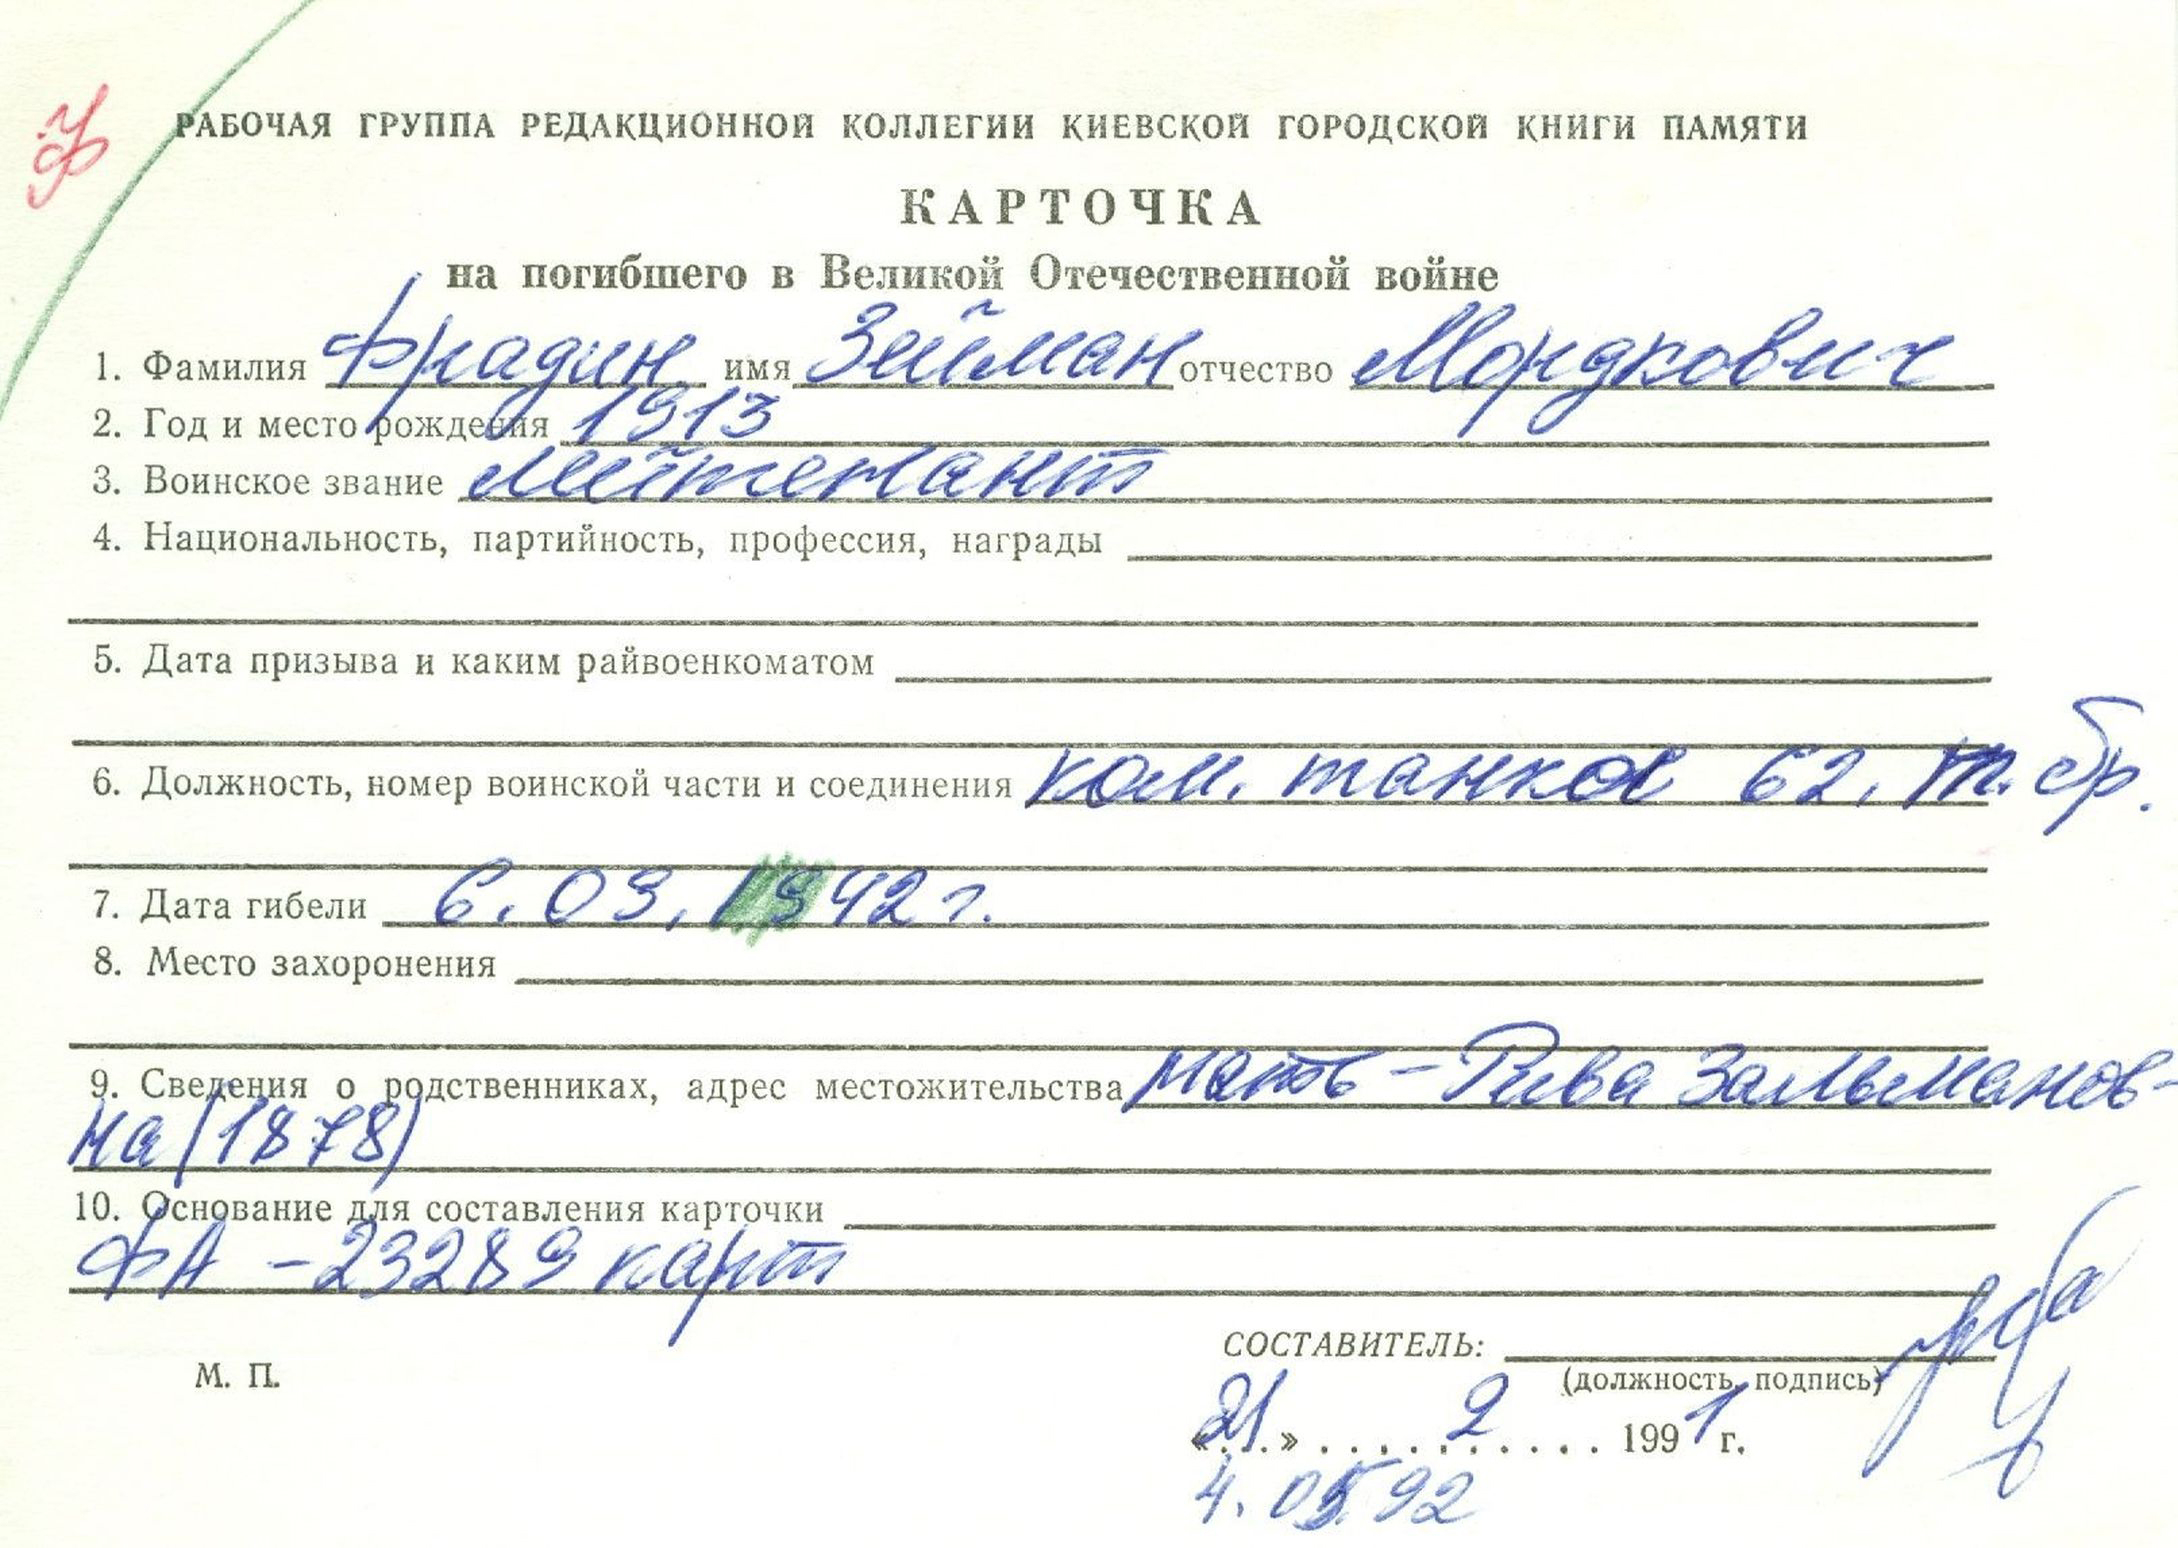 РАБОЧАЯ ГРУППА РЕДАКЦИОННОЙ КОЛЛЕГИИ КИЕВСКОЙ ГОРОДСКОЙ КНИГИ ПАМЯТИ
КАРТОЧКА
на погибшего в Великой Отечественной войне
1. Фамилия Фрадин имя Зейман отчество Мордкович
2. Год и место рождения 1913
3. Воинское звание лейтенант
4. Национальность, партийность, профессия, награды
5. Дата призыва и каким райвоенкоматом
6. Должность, номер воинской части и соединения ком. танка 62. т. бр.
7. Дата гибели 6.03.1942 г.
8. Место захоронения
9. Сведения о родственниках, адрес местожительства мать – Рива Зальманов-
на (1878)
10. Основание для составления карточки
ФА – 23289 карт
СОСТАВИТЕЛЬ:
М. П.
(должность, подпись)
«21» 2 1991 г.
4. 05. 92